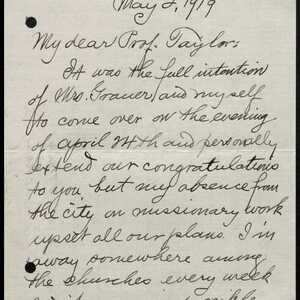 May 2, 1919
My dear Prof. Taylor:
It was the full intention
of Mrs. Grauer and myself
to come over on the evening
of April 24th and personally
extend our congratulations
to you but my absence from
the city on missionary work
upset all our plans. I'm
away somewhere among
the churches every week